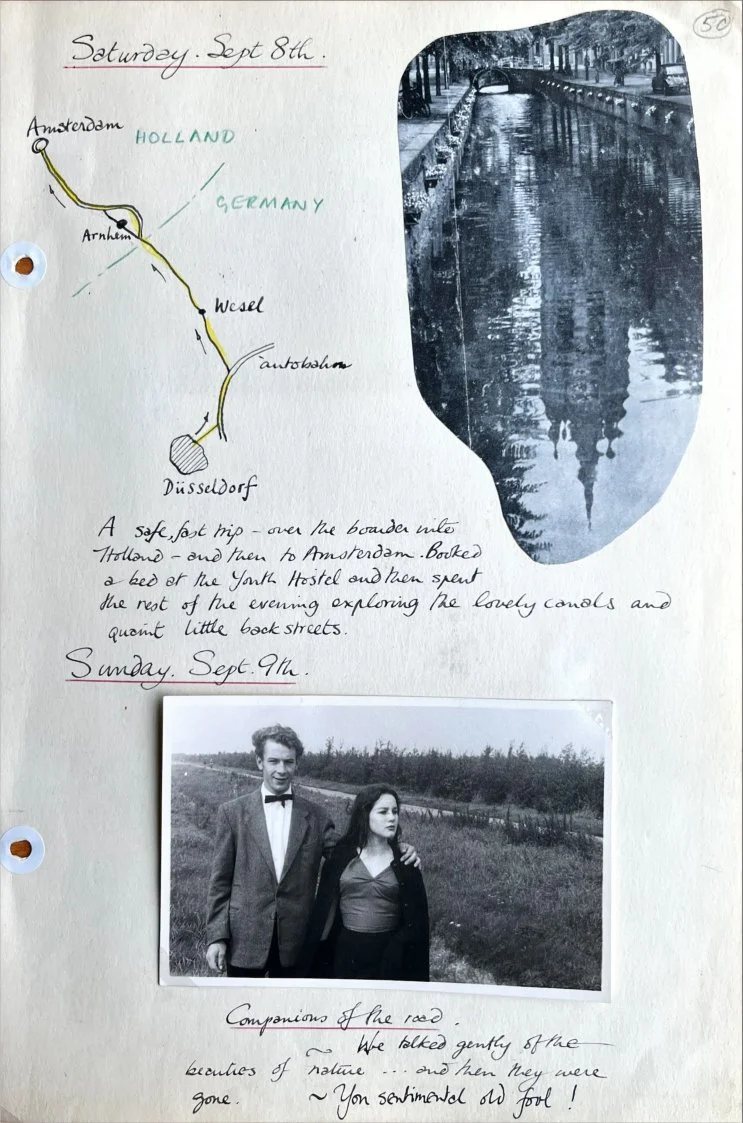 50
Saturday. Sept 8th.
Amsterdam
HOLLAND
GERMANY
Arnhem
Wesel
autobahn
Düsseldorf
A safe, fast trip – over the boarder into
Holland – and then to Amsterdam. Booked
a bed at the Youth Hostel and then spent
the rest of the evening exploring the lovely canals and
quaint little back streets.
Sunday. Sept. 9th.
Companions of the road.
~ We talked gently of the
beauties of nature ... and then they were
gone. ~ You sentimental old fool !